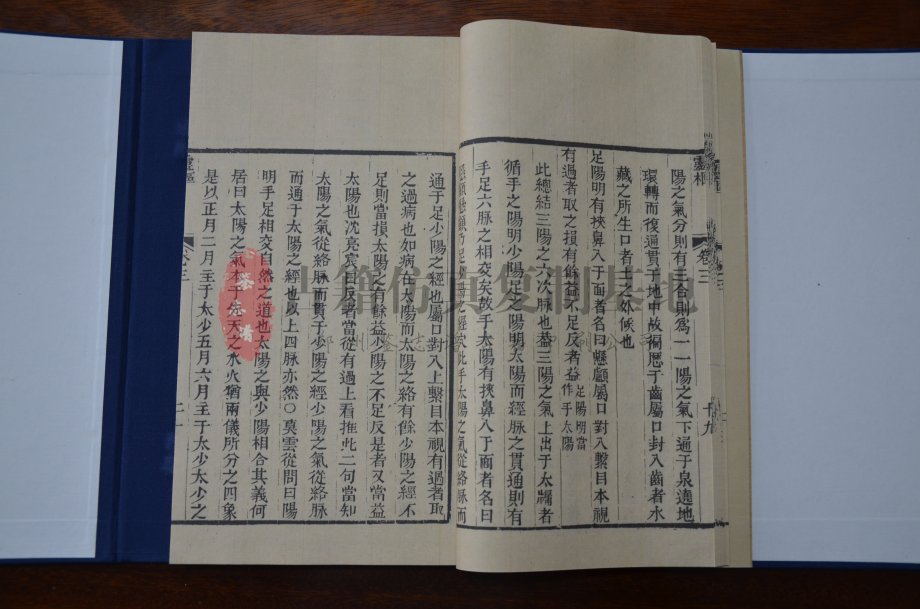 陽之氣分則有三合則為一一陽之氣下通于泉遶地
環轉而復過貫于地中故徧歷于齒屬口封入齒者水
藏之所生口者土之外候也
足陽明有挾鼻入于面者名曰懸顱屬口對入繫目本視
有過者取之損有餘益不足反者益
足陽明當
作手太陽
此總結三陽之六次脉也葢三陽之氣上出于太
循手之陽明少陽足之陽明太陽而經脉之貫通則有
手足六脉之相交矣故手太陽有挾鼻入于面者名曰
之經
此手太陽之氣從絡脉而
通于足少陽之經也屬口對入上繫目本視有過者取
之過病也如病在太陽而太陽之絡有餘少陽之經不
足則當損太陽之有餘益少陽之不足反是者又當益
太陽也沈亮宸曰反者當從有過上看推此二句當知
太陽之氣從絡脉而貫于少陽之經少陽之氣從絡脉
而通于太陽之經也以上四脉亦然○莫雲從問曰陽
明手足相交自然之道也太陽之與少陽相合其義何
居曰太陽之氣本于先天之水火猶兩儀所分之四象
是以正月二月主于太少五月六月主于太少太少之
靈樞
卷三
十九
靈樞
卷三
古籍仿真复制基地